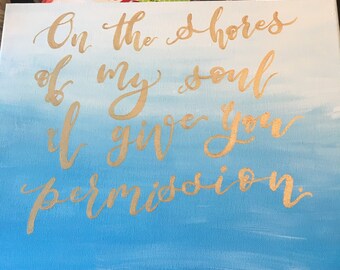 On the shores
of my soul
I give you
permission.